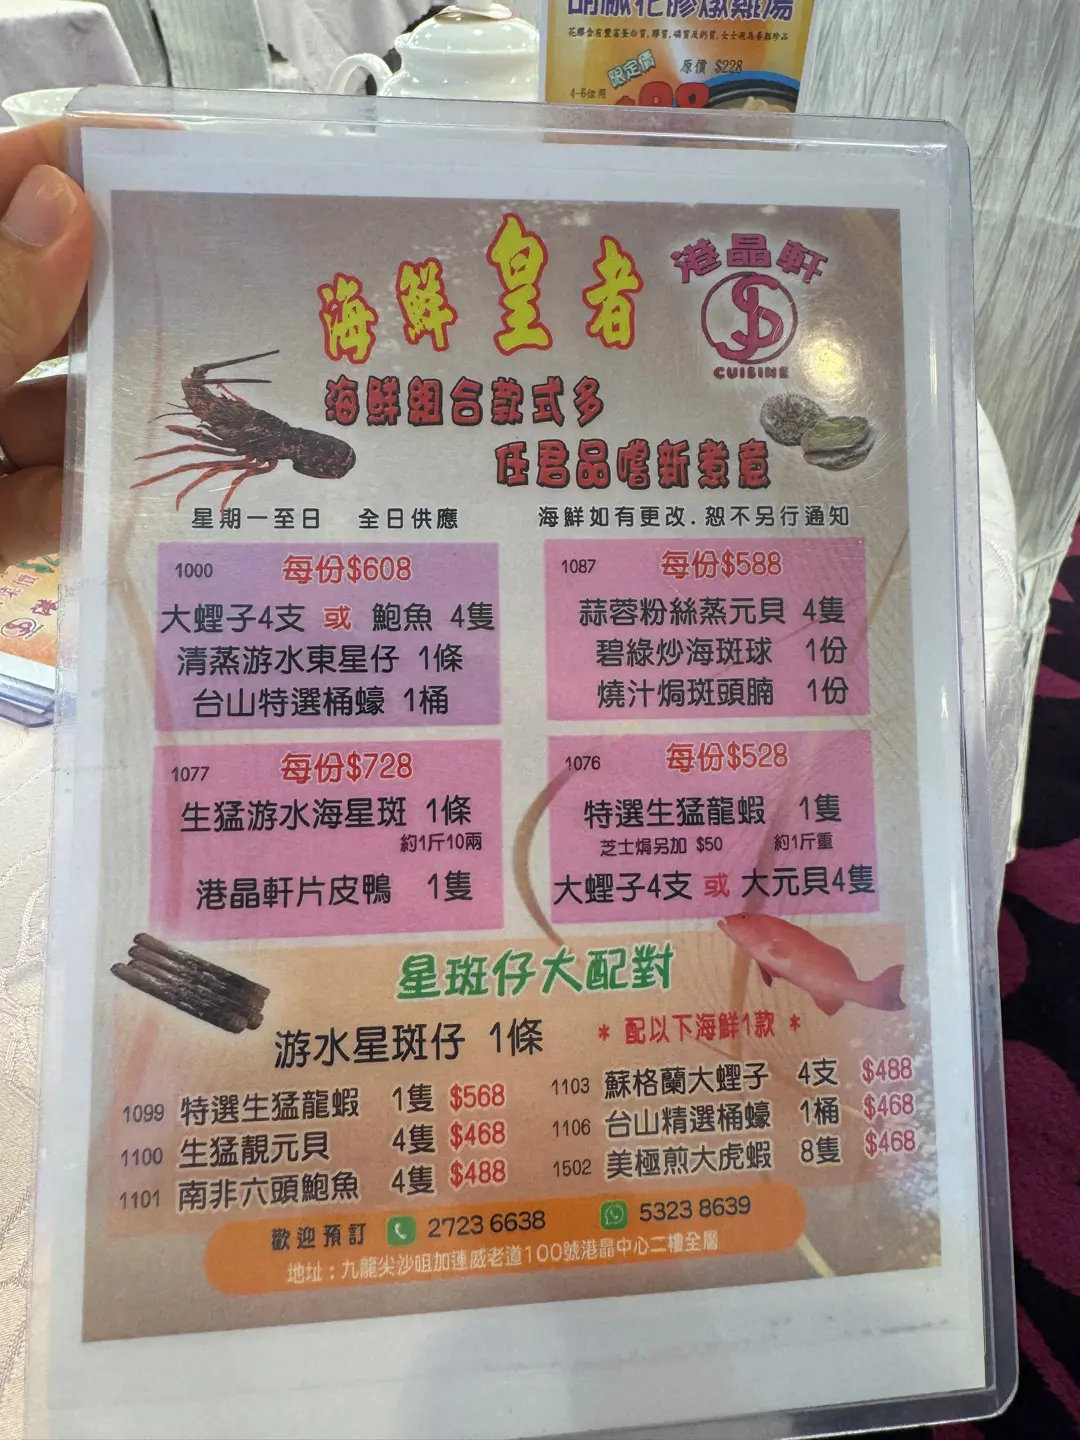 花膠燉雞湯
花膠含有豐富蛋白質,膠質,磷質及鈣質,女士視為養顏珍品
限定價 原價 $228
4-6位用
海鮮皇者
港晶軒
CUISINE
海鮮組合款式多
任君品嚐新煮意
星期一至日 全日供應
海鮮如有更改.恕不另行通知
1000 每份$608
大蟶子4支 或 鮑魚 4隻
清蒸游水東星仔 1條
台山特選桶蠔 1桶
1087 每份$588
蒜蓉粉絲蒸元貝 4隻
碧綠炒海斑球 1份
燒汁焗斑頭腩 1份
1077 每份$728
生猛游水海星斑 1條
約1斤10兩
港晶軒片皮鴨 1隻
1076 每份$528
特選生猛龍蝦 1隻
芝士焗另加 $50 約1斤重
大蟶子4支 或 大元貝4隻
星斑仔大配對
游水星斑仔 1條
* 配以下海鮮1款 *
1099 特選生猛龍蝦 1隻 $568
1100 生猛靚元貝 4隻 $468
1101 南非六頭鮑魚 4隻 $488
1103 蘇格蘭大蟶子 4支 $488
1106 台山精選桶蠔 1桶 $468
1502 美極煎大虎蝦 8隻 $468
歡迎預訂 2723 6638 5323 8639
地址:九龍尖沙咀加連威老道100號港晶中心二樓全層